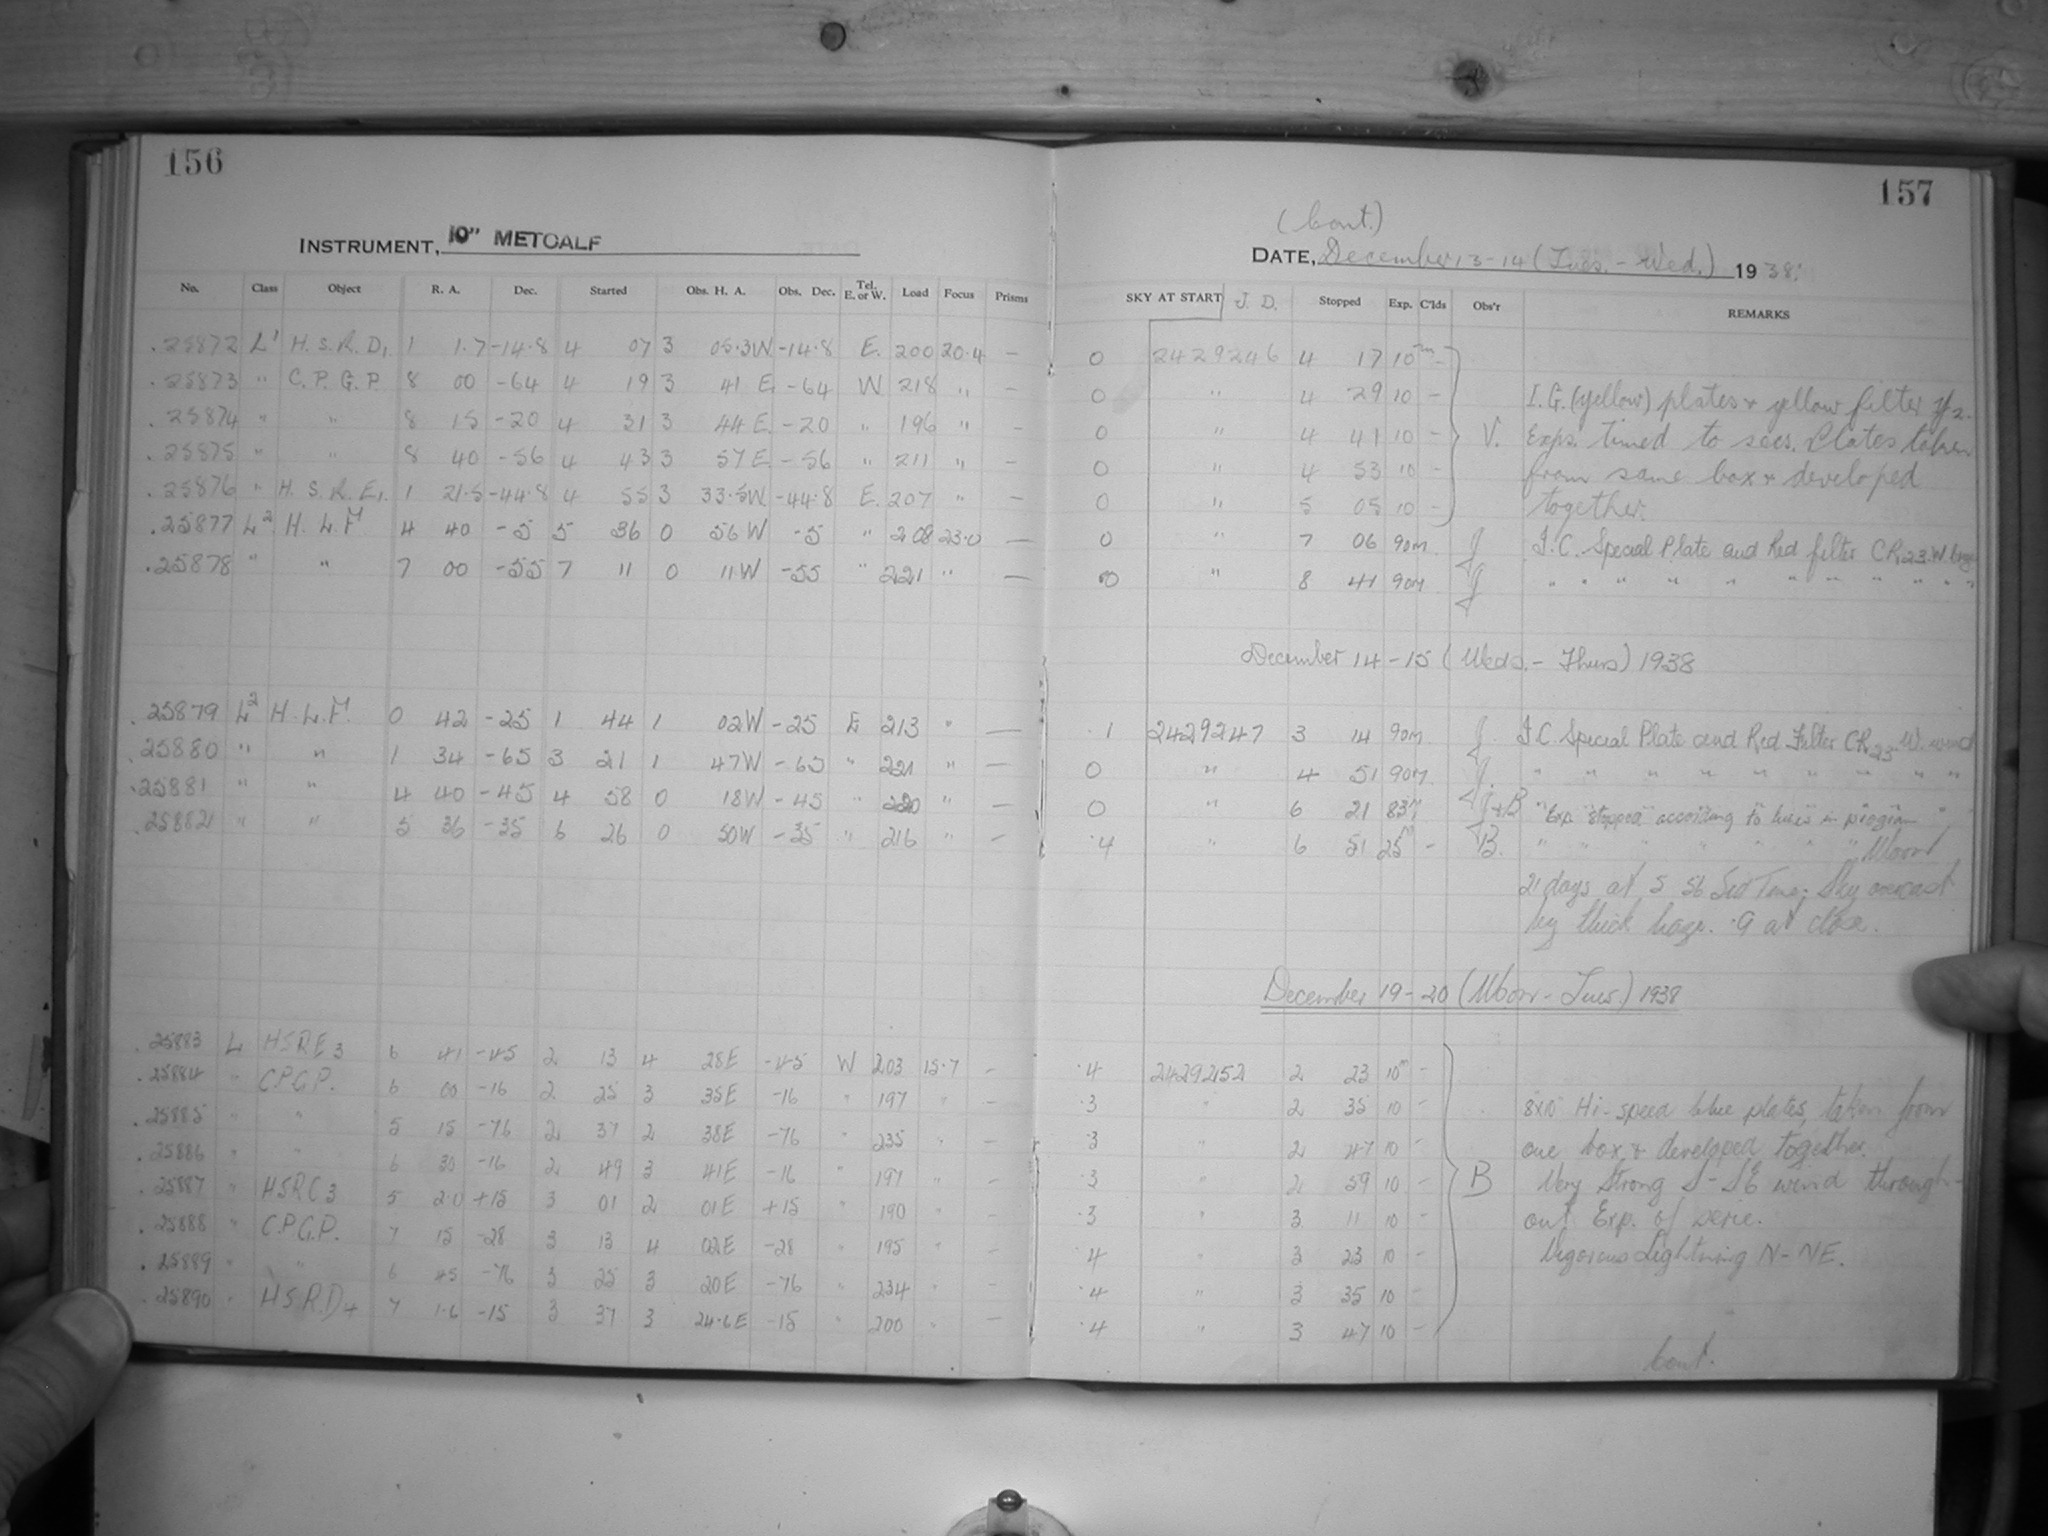 156
INSTRUMENT, 10" METCALF
No. Class Object R. A. Dec. Started Obs. H. A. Obs. Dec. Tel. E. or W. Load Focus Prisms
.25872 L' H.S.R.D1 1 1.7 -14.8 4 07 3 05.3W -14.8 E. 200 20.4 —
.25873 " C.P.G.P. 8 00 -64 4 19 3 41 E. -64 W 218 " —
.25874 " " 8 15 -20 4 31 3 44 E. -20 " 196 " —
.25875 " " 8 40 -56 4 43 3 57 E. -56 " 211 " —
.25876 " H.S.R.E1. 1 21.5 -44.8 4 55 3 33.5W -44.8 E. 207 " —
.25877 L2 H.L.M 4 40 -5 5 36 0 56 W -5 " 208 23.0 —
.25878 " " 7 00 -55 7 11 0 11 W -55 " 221 " —
.25879 L2 H.L.M. 0 42 -25 1 44 1 02W -25 E 213 " —
.25880 " " 1 34 -65 3 21 1 47W -65 " 221 " —
.25881 " " 4 40 -45 4 58 0 18W -45 " 220 " —
.25882 " " 5 36 -35 6 26 0 50W -35 " 216 " —
.25883 L HSRE3 6 41 -45 2 13 4 28E -45 W 203 15.7 —
.25884 " C.P.G.P. 6 00 -16 2 25 3 35E -16 " 197 " —
.25885 " " 5 15 -76 2 37 2 38E -76 " 235 " —
.25886 " " 6 30 -16 2 49 3 41E -16 " 197 " —
.25887 " HSRC3 5 2.0 +15 3 01 2 01E +15 " 190 " —
.25888 " C.P.G.P. 7 15 -28 3 13 4 02E -28 " 195 " —
.25889 " " 6 45 -76 3 25 3 20E -76 " 234 " —
.25890 " H.S.R.D4 7 1.6 -15 3 37 3 24.6E -15 " 200 " —
157
(Cont.)
DATE, December 13-14 (Tues. - Wed.) 1938.
SKY AT START J. D. Stopped Exp. C'lds Obs'r REMARKS
0 2429246 4 17 10m —
0 " 4 29 10 — I.G. (yellow) plates & yellow filter
0 " 4 41 10 — V. Exps. timed to secs. Plates taken
0 " 4 53 10 — from same box & developed
0 " 5 05 10 — together.
0 " 7 06 90m J I.C. Special Plate and Red filter CR23.W
0 " 8 41 90m J " " " " " " " " "
December 14-15 (Weds. - Thurs) 1938
.1 2429247 3 14 90m J I.C. Special Plate and Red Filter CR23 W.
0 " 4 51 90m J. " " " " " " " " "
0 " 6 21 83m J+B " Exp. stopped according to in program "
.4 " 6 51 25m — B. " " " " " " " Moon
21 days at 5 56 Sid Time; Sky overcast
by thick haze. .9 at close.
December 19-20 (Mon - Tues.) 1938
.4 2429252 2 23 10m —
.3 " 2 35 10 — 8x10 Hi-speed blue plates, taken from
.3 " 2 47 10 — one box & developed together.
.3 " 2 59 10 — B Very Strong S-SE wind through-
.3 " 3 11 10 — out Exp. of serie.
.4 " 3 23 10 — Vigorous Lightning N-NE.
.4 " 3 35 10 —
.4 " 3 47 10 —
Cont.